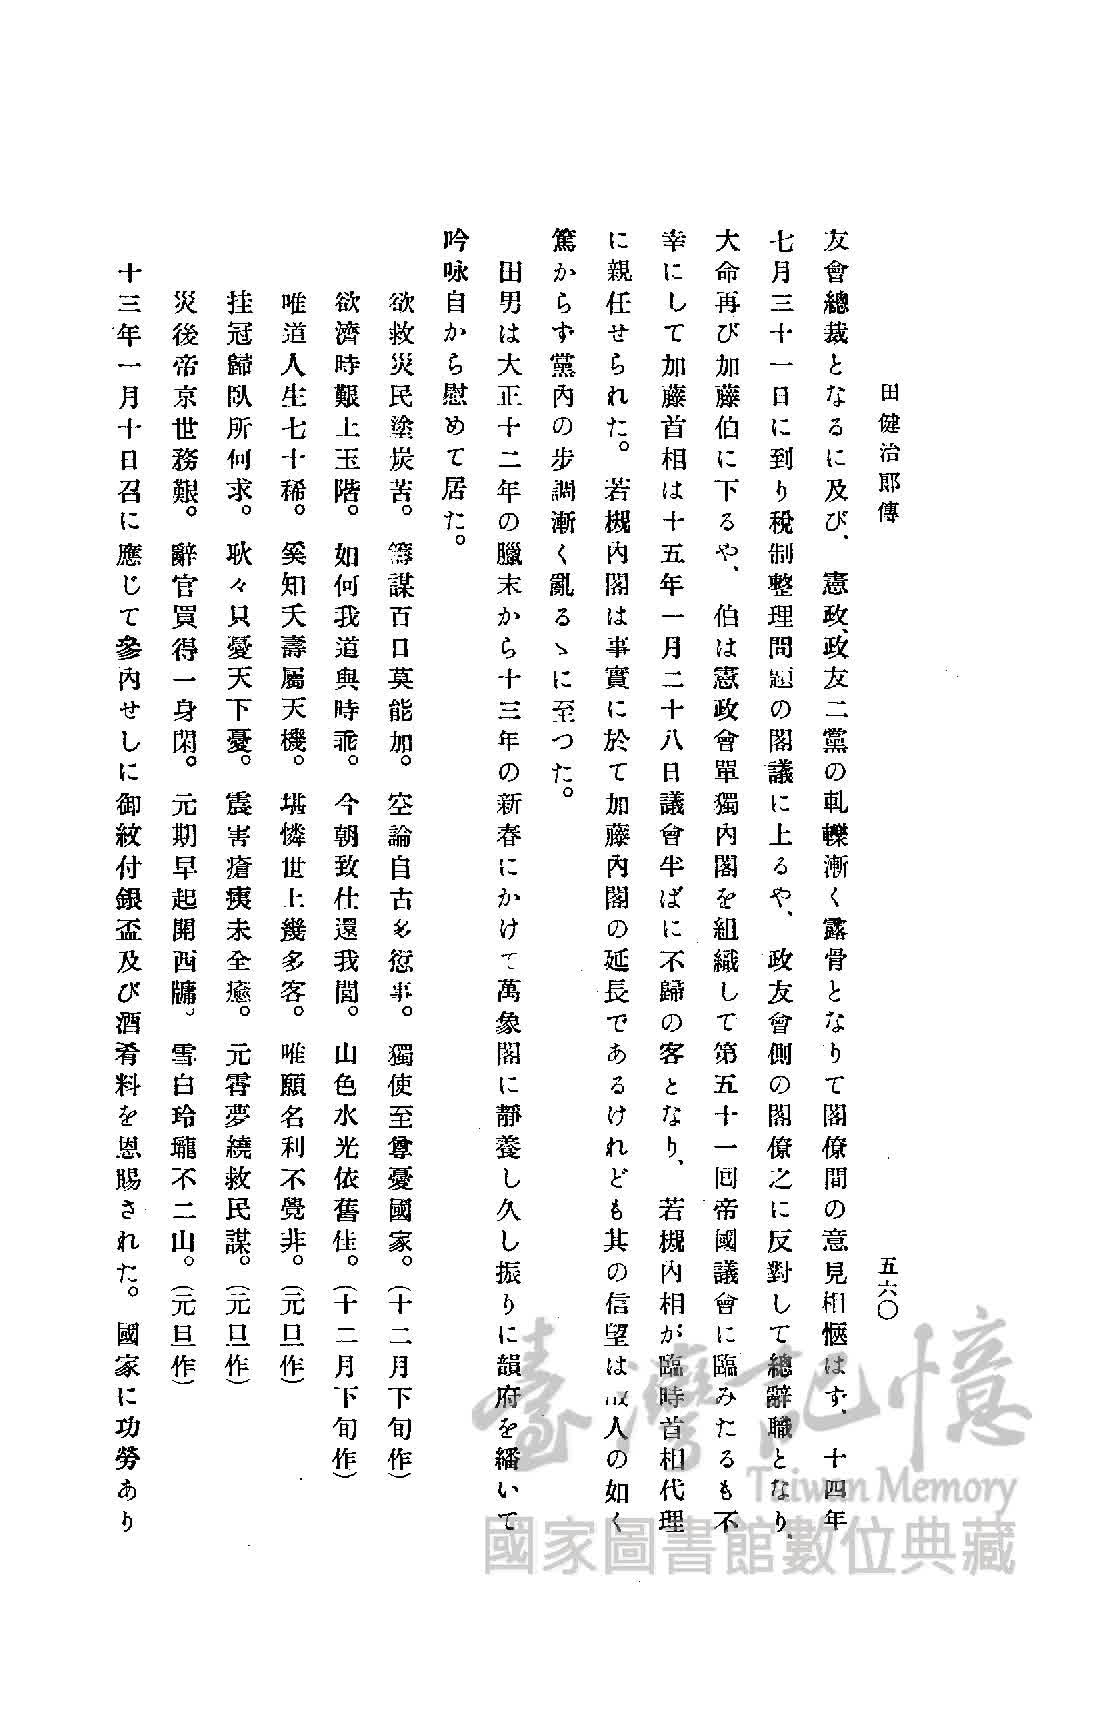 田健治郎傳
五六〇
友會總裁となるに及び、憲政、政友二黨の軋轢漸く露骨となりて閣僚間の意見相愜はず、十四年
七月三十一日に到り稅制整理問題の閣議に上るや、政友會側の閣僚之に反對して總辭職となり、
大命再び加藤伯に下るや、伯は憲政會單獨內閣を組織して第五十一囘帝國議會に臨みたるも不
幸にして加藤首相は十五年一月二十八日議會半ばに不歸の客となり、若槻內相が臨時首相代理
に親任せられた。若槻內閣は事實に於て加藤內閣の延長であるけれども其の信望は故人の如く
篤からず黨內の步調漸く亂るゝに至つた。
田男は大正十二年の臘末から十三年の新春にかけて萬象閣に靜養し久し振りに韻府を繙いて
吟咏自から慰めて居た。
欲救災民塗炭苦。籌謀百日莫能加。空論自古多愆事。獨使至尊憂國家。(十二月下旬作)
欲濟時艱上玉階。如何我道與時乖。今朝致仕還我閭。山色水光依舊佳。(十二月下旬作)
唯道人生七十稀。奚知夭壽屬天機。堪憐世上幾多客。唯願名利不覺非。(元旦作)
挂冠歸臥所何求。耿々只憂天下憂。震害瘡痍未全癒。元霄夢繞救民謀。(元旦作)
災後帝京世務艱。辭官買得一身閑。元期早起開西牖。雪白玲瓏不二山。(元旦作)
十三年一月十日召に應じて參內せしに御紋付銀盃及び酒肴料を恩賜された。國家に功勞あり
臺灣記憶
Taiwan Memory
國家圖書館數位典藏